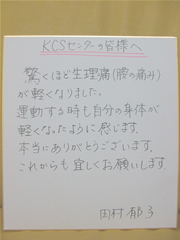 KCSセンターの皆様へ
驚くほど生理痛(腰の痛み)
が軽くなりました。
運動する時も自分の身体が
軽くなったように感じます。
本当にありがとうございます。
これからも宜しくお願いします。
田村郁子